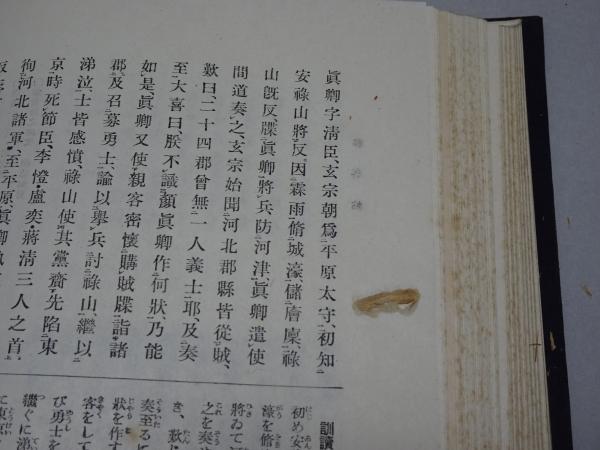 眞卿字淸臣、玄宗朝爲平原太守、初知
安祿山將反、因霖雨脩城濠、儲廥廩、祿
山旣反、牒眞卿、將兵防河津、眞卿遣使
間道奏之、玄宗始聞河北郡縣皆從賊、
歎曰、二十四郡曾無一人義士耶、及奏
至大喜曰、朕不識顏眞卿作何狀、乃能
如是、眞卿又使親客密懷購賊牒、詣諸
郡、及召募勇士、諭以擧兵討祿山、繼以
涕泣、士皆感憤、祿山使其黨齎先陷東
京時死節臣、李憕盧奕蔣淸三人之首、
徇河北諸軍、至平原、眞卿
訓讀
初め安
濠を脩
將ゐて河
之を奏
き、歎
奏至るに
狀を作す
客をして
び勇士を
繼ぐに涕